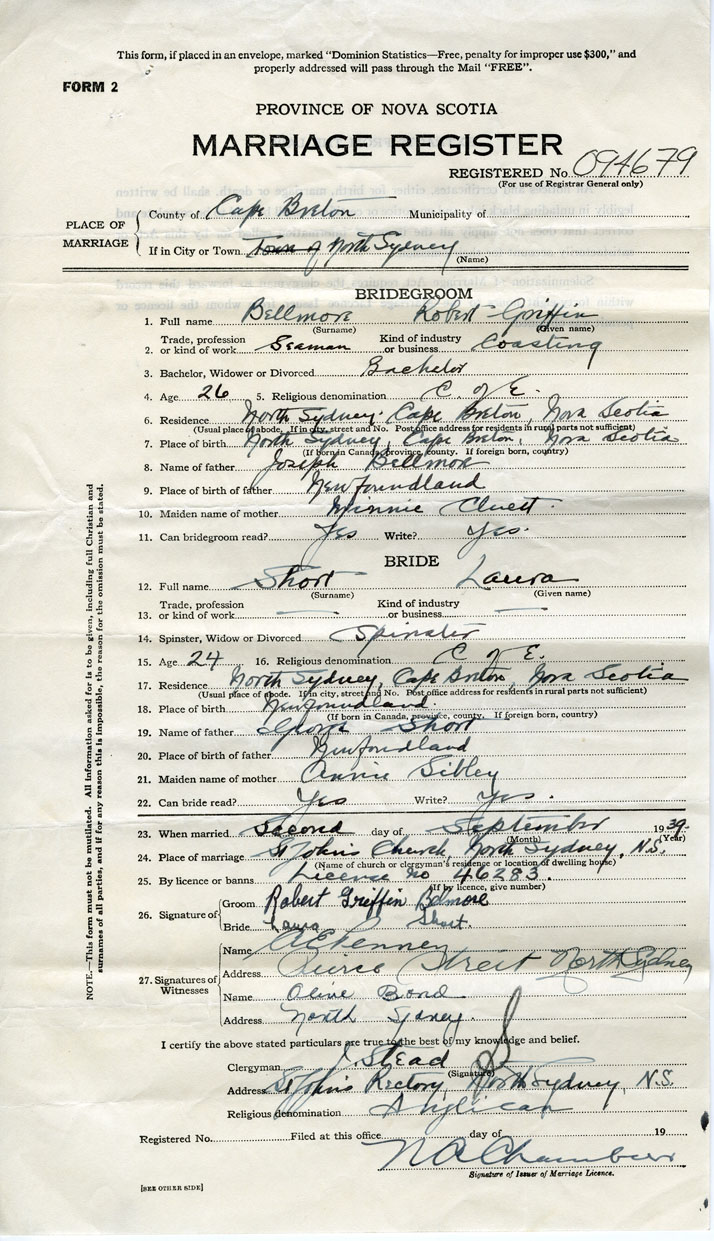 This form, if placed in an envelope, marked "Dominion Statistics—Free, penalty for improper use $300," and
properly addressed will pass through the Mail "FREE".
FORM 2
PROVINCE OF NOVA SCOTIA
MARRIAGE REGISTER
REGISTERED No. 094679
(For use of Registrar General only)
PLACE OF MARRIAGE
County of Cape Breton Municipality of
If in City or Town Town of North Sydney
(Name)
BRIDEGROOM
1. Full name Bellmore Robert Griffin
(Surname) (Given name)
2. Trade, profession or kind of work Seaman Kind of industry or business Coasting
3. Bachelor, Widower or Divorced Bachelor
4. Age 26 5. Religious denomination C. of E.
6. Residence North Sydney, Cape Breton, Nova Scotia
(Usual place of abode. If in city, street and No. Post office address for residents in rural parts not sufficient)
7. Place of birth North Sydney, Cape Breton, Nova Scotia
(If born in Canada, province, county. If foreign born, country)
8. Name of father Joseph Bellmore
9. Place of birth of father Newfoundland
10. Maiden name of mother Minnie Cluett
11. Can bridegroom read? Yes Write? Yes.
BRIDE
12. Full name Short Laura
(Surname) (Given name)
13. Trade, profession or kind of work — Kind of industry or business —
14. Spinster, Widow or Divorced Spinster
15. Age 24 16. Religious denomination C. of E.
17. Residence North Sydney, Cape Breton, Nova Scotia
(Usual place of abode. If in city, street and No. Post office address for residents in rural parts not sufficient)
18. Place of birth Newfoundland.
(If born in Canada, province, county. If foreign born, country)
19. Name of father George Short
20. Place of birth of father Newfoundland
21. Maiden name of mother Annie Sibley
22. Can bride read? Yes Write? Yes.
23. When married Second day of September 1939.
(Month) (Year)
24. Place of marriage St John's Church, North Sydney, N.S.
(Name of church or clergyman's residence or location of dwelling house)
25. By licence or banns License no 46283.
(If by licence, give number)
26. Signature of
Groom Robert Griffin Belmore
Bride Laura Short.
27. Signatures of Witnesses
Name
Address Pierce Street North Sydney
Name Olive Bond
Address North Sydney.
I certify the above stated particulars are true to the best of my knowledge and belief.
Clergyman J. Stead
(Signature)
Address St John's Rectory, North Sydney, N.S.
Religious denomination Anglican
Registered No. Filed at this office day of 19
Chambers
Signature of Issuer of Marriage Licence.
[SEE OTHER SIDE]
NOTE.—This form must not be mutilated. All information asked for is to be given, including full Christian and
surnames of all parties, and if for any reason this is impossible, the reason for the omission must be stated.